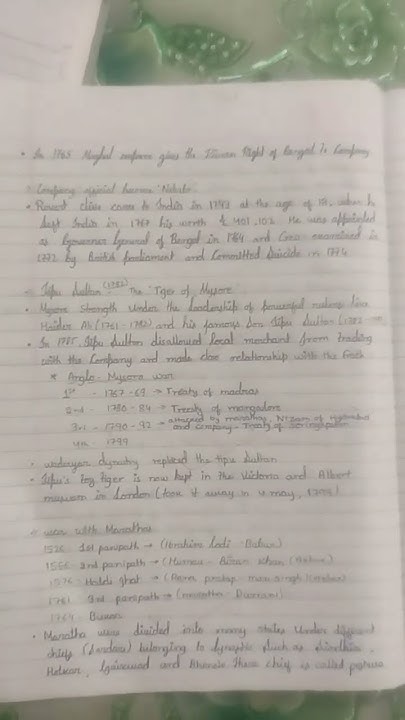 • In 1765 Mughal emperor gives the Diwani Right of Bengal To Company
Company official become "Nabobs".
• Robert clive come to India in 1743 at the age of 18. when he
left India in 1767 his worth £ 401,102. He was appointed
as Governor General of Bengal in 1764 and cross examined in
1772 by British parliament and Committed Suicide in 1774
Tipu Sultan (1782) "The Tiger of Mysore"
• Mysore Strength under the Leadership of powerful rulers like
Haider Ali (1761 - 1782) and his famous Son Tipu Sultan (1782 -
• In 1785, Tipu Sultan disallowed local merchant from trading
with the Company and made close relationship with the
* Anglo - Mysore war
1st - 1767 - 69 → Treaty of madras
2nd - 1780 - 84 → Treaty of mangalore
3rd - 1790 - 92 → attacked by marathas, Nizam of Hyderabad
and company - Treaty of
4th - 1799
• wodeyar dynasty replaced the tipu Sultan
• Tipu's toy tiger is now kept in the Victoria and Albert
museum in London (took it away in 4 may, 1799)
war with Marathas
1526 1st panipath → (Ibrahim Lodi - Babur)
1556 2nd panipath →
1576 Haldi ghat → (Rana pratap man singh
1761 3rd panipath → (maratha - Durrani)
1764 - Buxar
• Maratha was divided into many states under different
chiefs (Sardars) belonging to dynasties such as Sindhia,
Holkar, Gaikwad and Bhonsle these chief is called peshwa